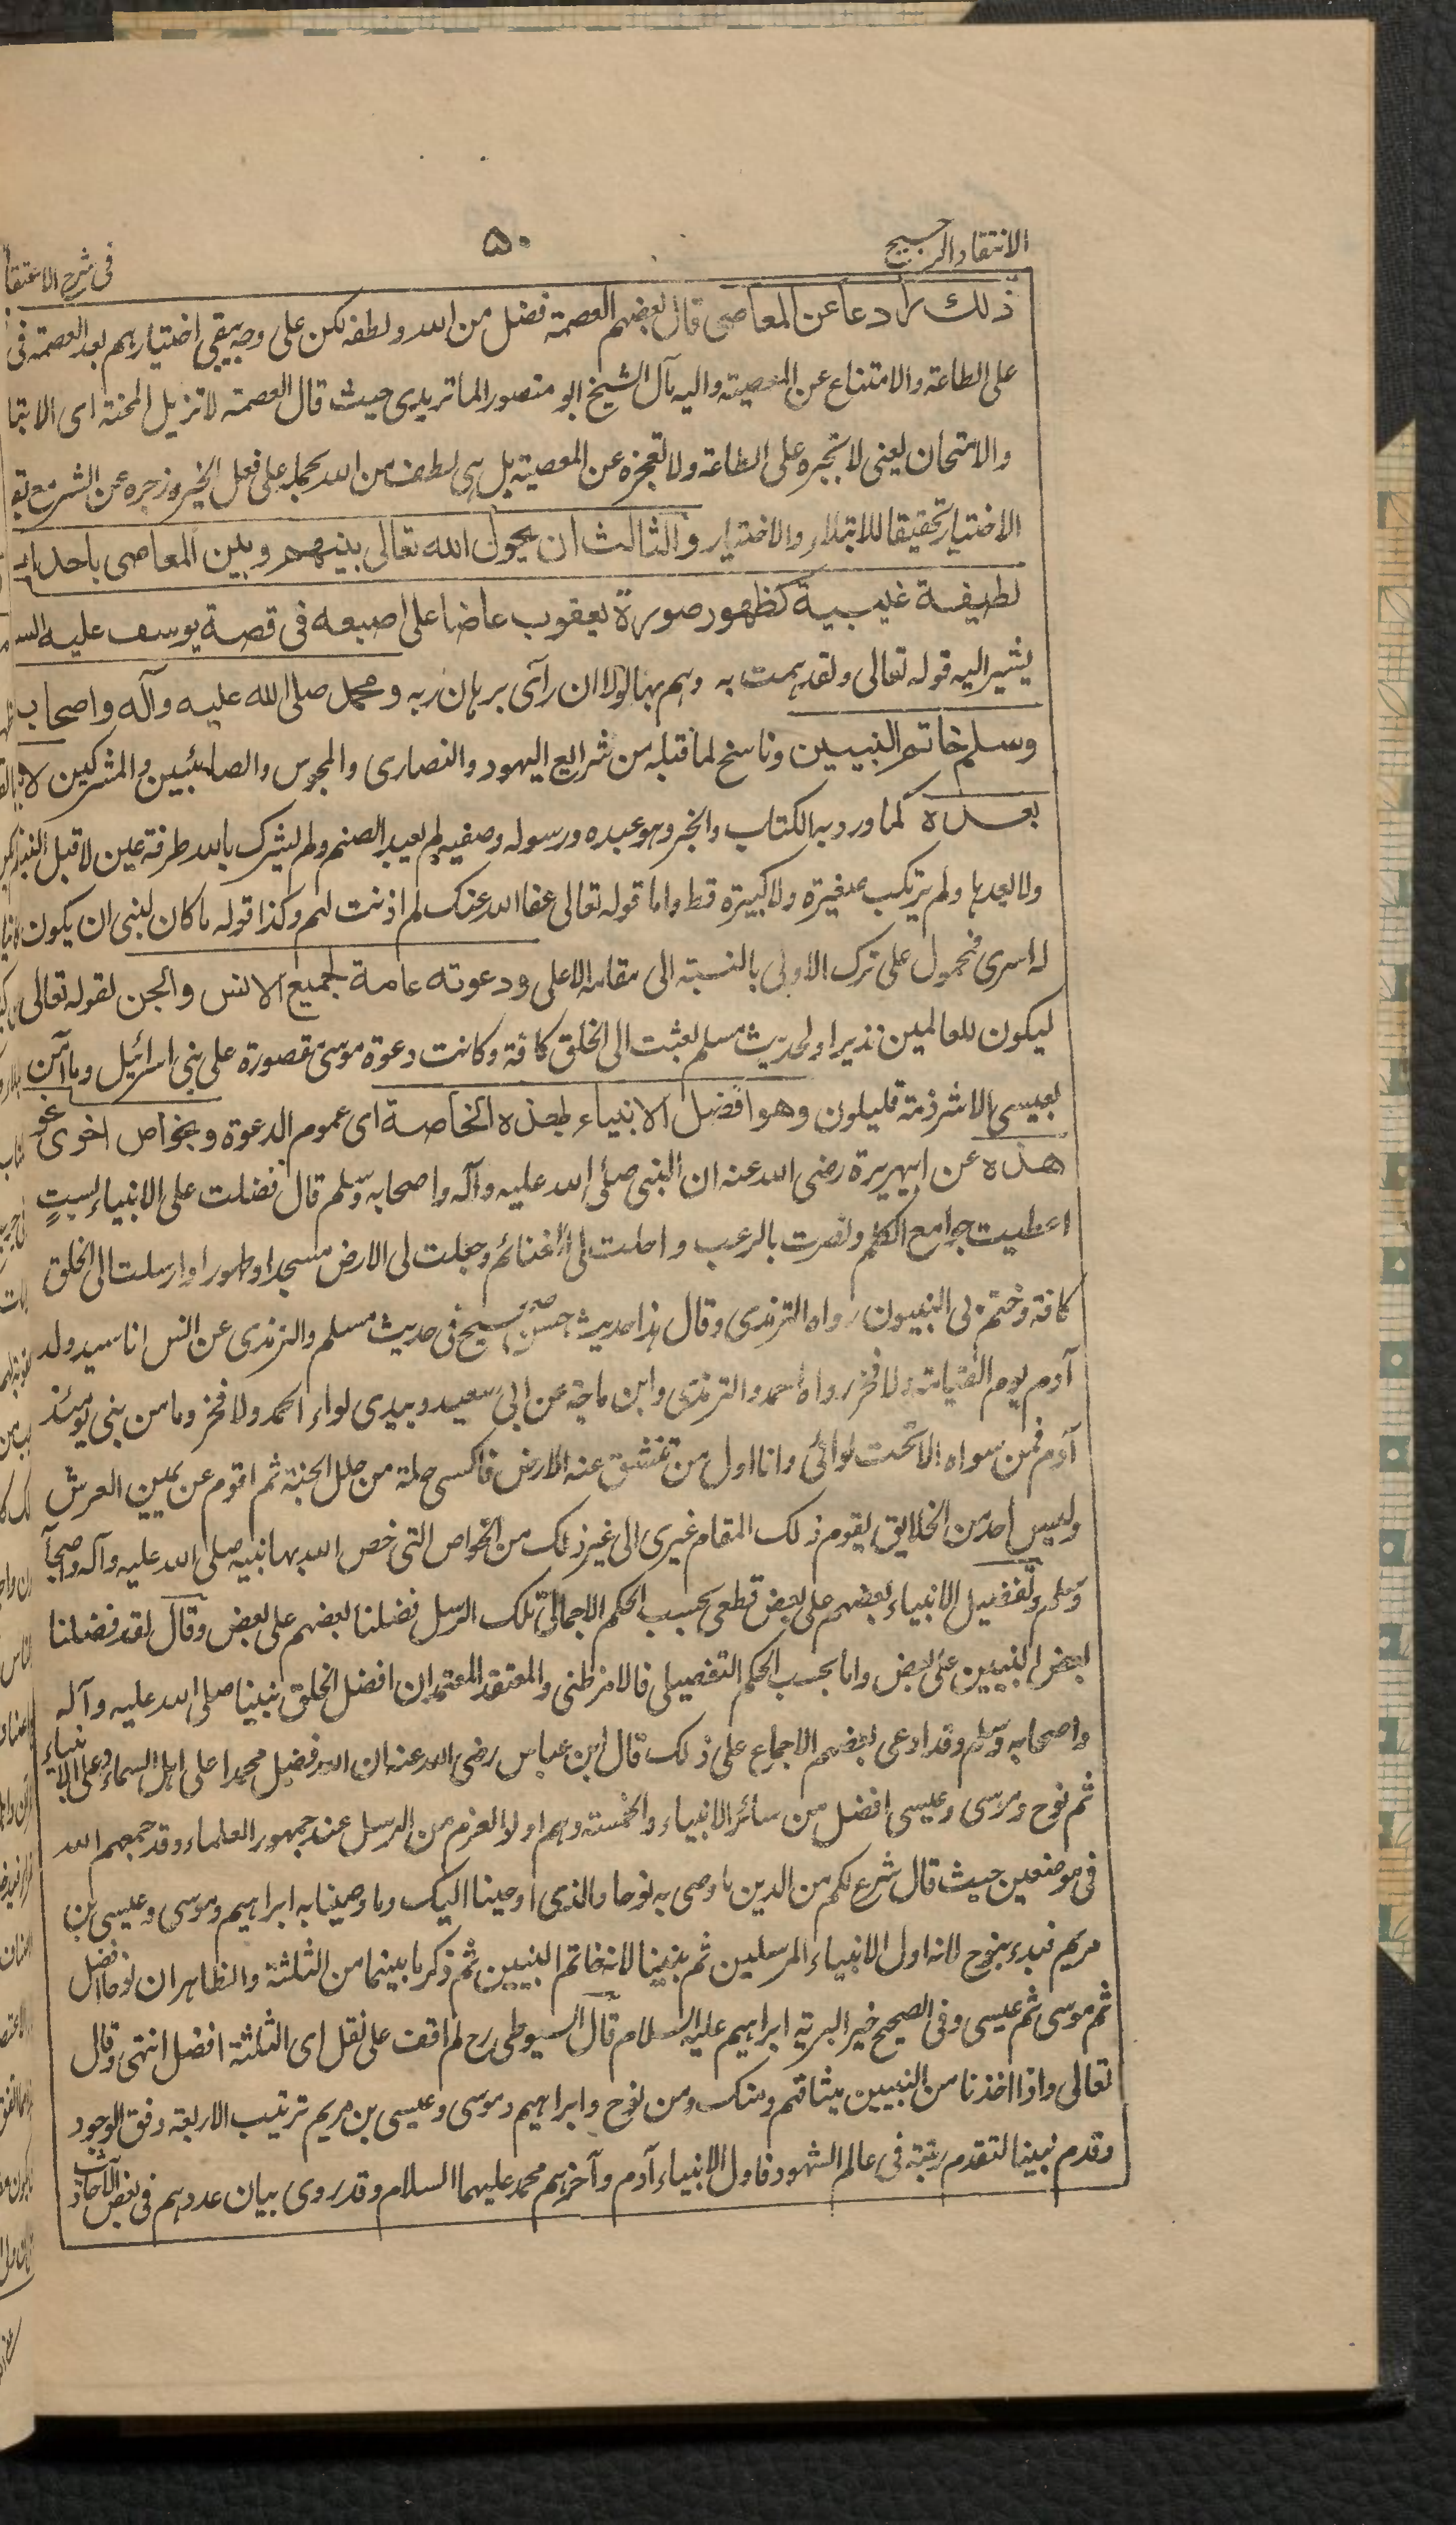 الانتقاد الرجيح
۵۰
فى شرح الاعتقا
ذلك رادعا عن المعاصى قال بعضهم العصمة فضل من الله ولطف لكن على وجه يبقى اختيارهم بعد العصمة فى
على الطاعة والامتناع عن المعصية واليه مآل الشيخ ابو منصور الماتريدى حيث قال العصمة لا تزيل المحنة اى الابتلا
والامتحان يعنى لا تجبره على الطاعة ولا تعجزه عن المعصية بل هى لطف من الله يحمله على فعل الخير وزجره عن الشر مع بقا
الاختيار تحقيقا للابتلاء والاختيار والثالث ان يحول الله تعالى بينهم وبين المعاصى باحداث
لطيفة غيبية كظهور صورة يعقوب عاضا على اصبعه فى قصة يوسف عليه السـ
يشير اليه قوله تعالى ولقد همت به وهم بها لولا ان رآى برهان ربه ومحمد صلى الله عليه وآله واصحابه
وسلم خاتم النبيين وناسخ لما قبله من شرايع اليهود والنصارى والمجوس والصابئين والمشركين لا نبى
بعده كما ورد به الكتاب والخبر وهو عبده ورسوله وصفيه لم يعبد الصنم ولم يشرك بالله طرفة عين لا قبل النبوة
ولا بعدها ولم يرتكب صغيرة ولا كبيرة قط واما قوله تعالى عفا الله عنك لم اذنت لهم وكذا قوله ما كان لنبى ان يكون
له اسرى فمحمول على ترك الاولى بالنسبة الى مقامه الاعلى ودعوته عامة لجميع الانس والجن لقوله تعالى
ليكون للعالمين نذيرا ولحديث مسلم بعثت الى الخلق كافة وكانت دعوة موسى مقصورة على بنى اسرائيل وما آمن
بعيسى الا شرذمة قليلون وهو افضل الانبياء لهذه الخاصة اى عموم الدعوة وبخواص اخرى نحو
هذه عن ابيهريرة رضى الله عنه ان النبى صلى الله عليه وآله واصحابه وسلم قال فضلت على الانبياء بست
اعطيت جوامع الكلم ونصرت بالرعب واحلت لى الغنائم وجعلت لى الارض مسجدا وطهورا وارسلت الى الخلق
كافة وختم بى النبيون رواه الترمذى وقال هذا حديث حسن صحيح فى حديث مسلم والترمذى عن انس انا سيد ولد
آدم يوم القيامة ولا فخر رواه احمد والترمذى وابن ماجة عن ابى سعيد وبيدى لواء الحمد ولا فخر وما من نبى يومئذ
آدم فمن سواه الا تحت لوائى وانا اول من تنشق عنه الارض فاكسى حلة من حلل الجنة ثم اقوم عن يمين العرش
وليس احد من الخلايق يقوم ذلك المقام غيرى الى غير ذلك من الخواص التى خص الله بها نبيه صلى الله عليه وآله واصحآ
وسلم وتفضيل الانبياء بعضهم على بعض قطعى بحسب الحكم الاجمالى تلك الرسل فضلنا بعضهم على بعض وقال لقد فضلنا
بعض النبيين على بعض واما بحسب الحكم التفصيلى فالامر ظنى والمعتقد المعتمد ان افضل الخلق نبينا صلى الله عليه وآله
واصحابه وسلم وقد ادعى بعضهم الاجماع على ذلك قال ابن عباس رضى الله عنه ان الله فضل محمدا على اهل السماء وعلى الانبياء
ثم نوح وموسى وعيسى افضل من سائر الانبياء والخمسة وهم اولا العزم من الرسل عند جمهور العلماء وقد جمعهم الله
فى موضعين حيث قال شرع لكم من الدين ما وصى به نوحا والذى اوحينا اليك وما وصينا به ابراهيم وموسى وعيسى بن
مريم فبدء بنوح لانه اول الانبياء المرسلين ثم بنبينا لانه خاتم النبيين ثم ذكر ما بينهما من الثلثة والظاهر ان نوحا افضل
ثم موسى ثم عيسى وفى الصحيح خير البرية ابراهيم عليه السلام قال السيوطى رح لم اقف على نقل اى الثلثة افضل انتهى وقال
تعالى واذ اخذنا من النبيين ميثاقهم ومنك ومن نوح وابراهيم وموسى وعيسى بن مريم ترتيب الاربعة وفق الوجود
وقدم نبينا لتقدم رتبته فى عالم الشهود فاول الانبياء آدم وآخرهم محمد عليهما السلام وقد روى بيان عددهم فى بعض الاحاديث